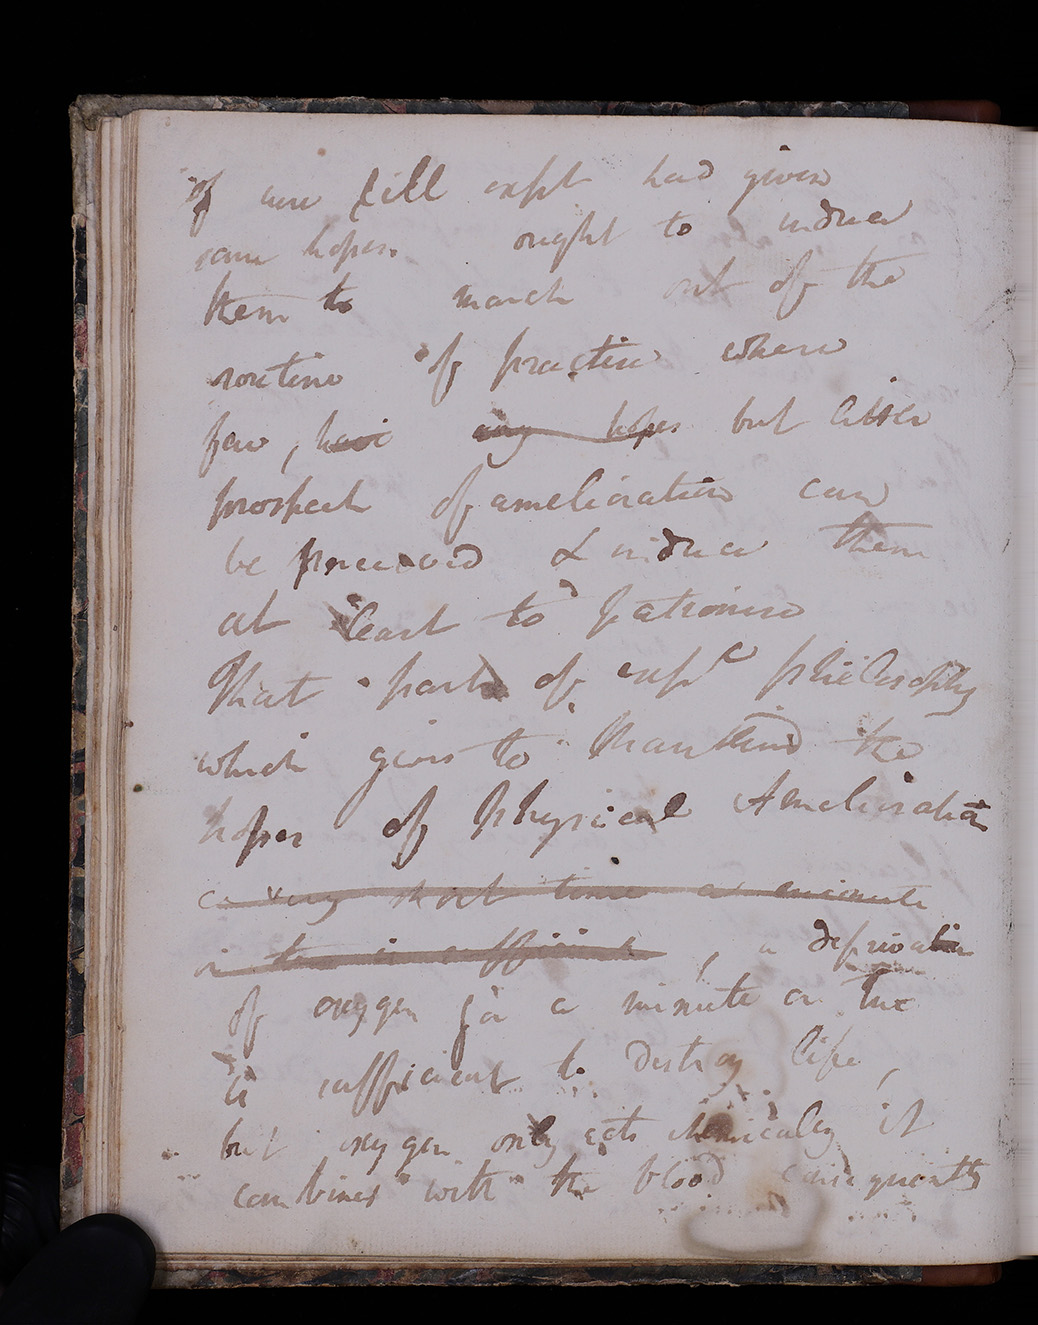 of were still expt had given
some hopes. ought to induce
them to march out of the
routine of practice where
few, have any hopes but little
prospect of amelioration can
be perceived & induce them
at least to patronise
that part of expl philosophy
which gives to Mankind the
hopes of physical Amelioration
a very short time a minute
or two is sufficient , a deprivation
of oxygen for a minute or two
is sufficient to destroy life,
but oxygen only acts chemically it
combines with the blood consequently